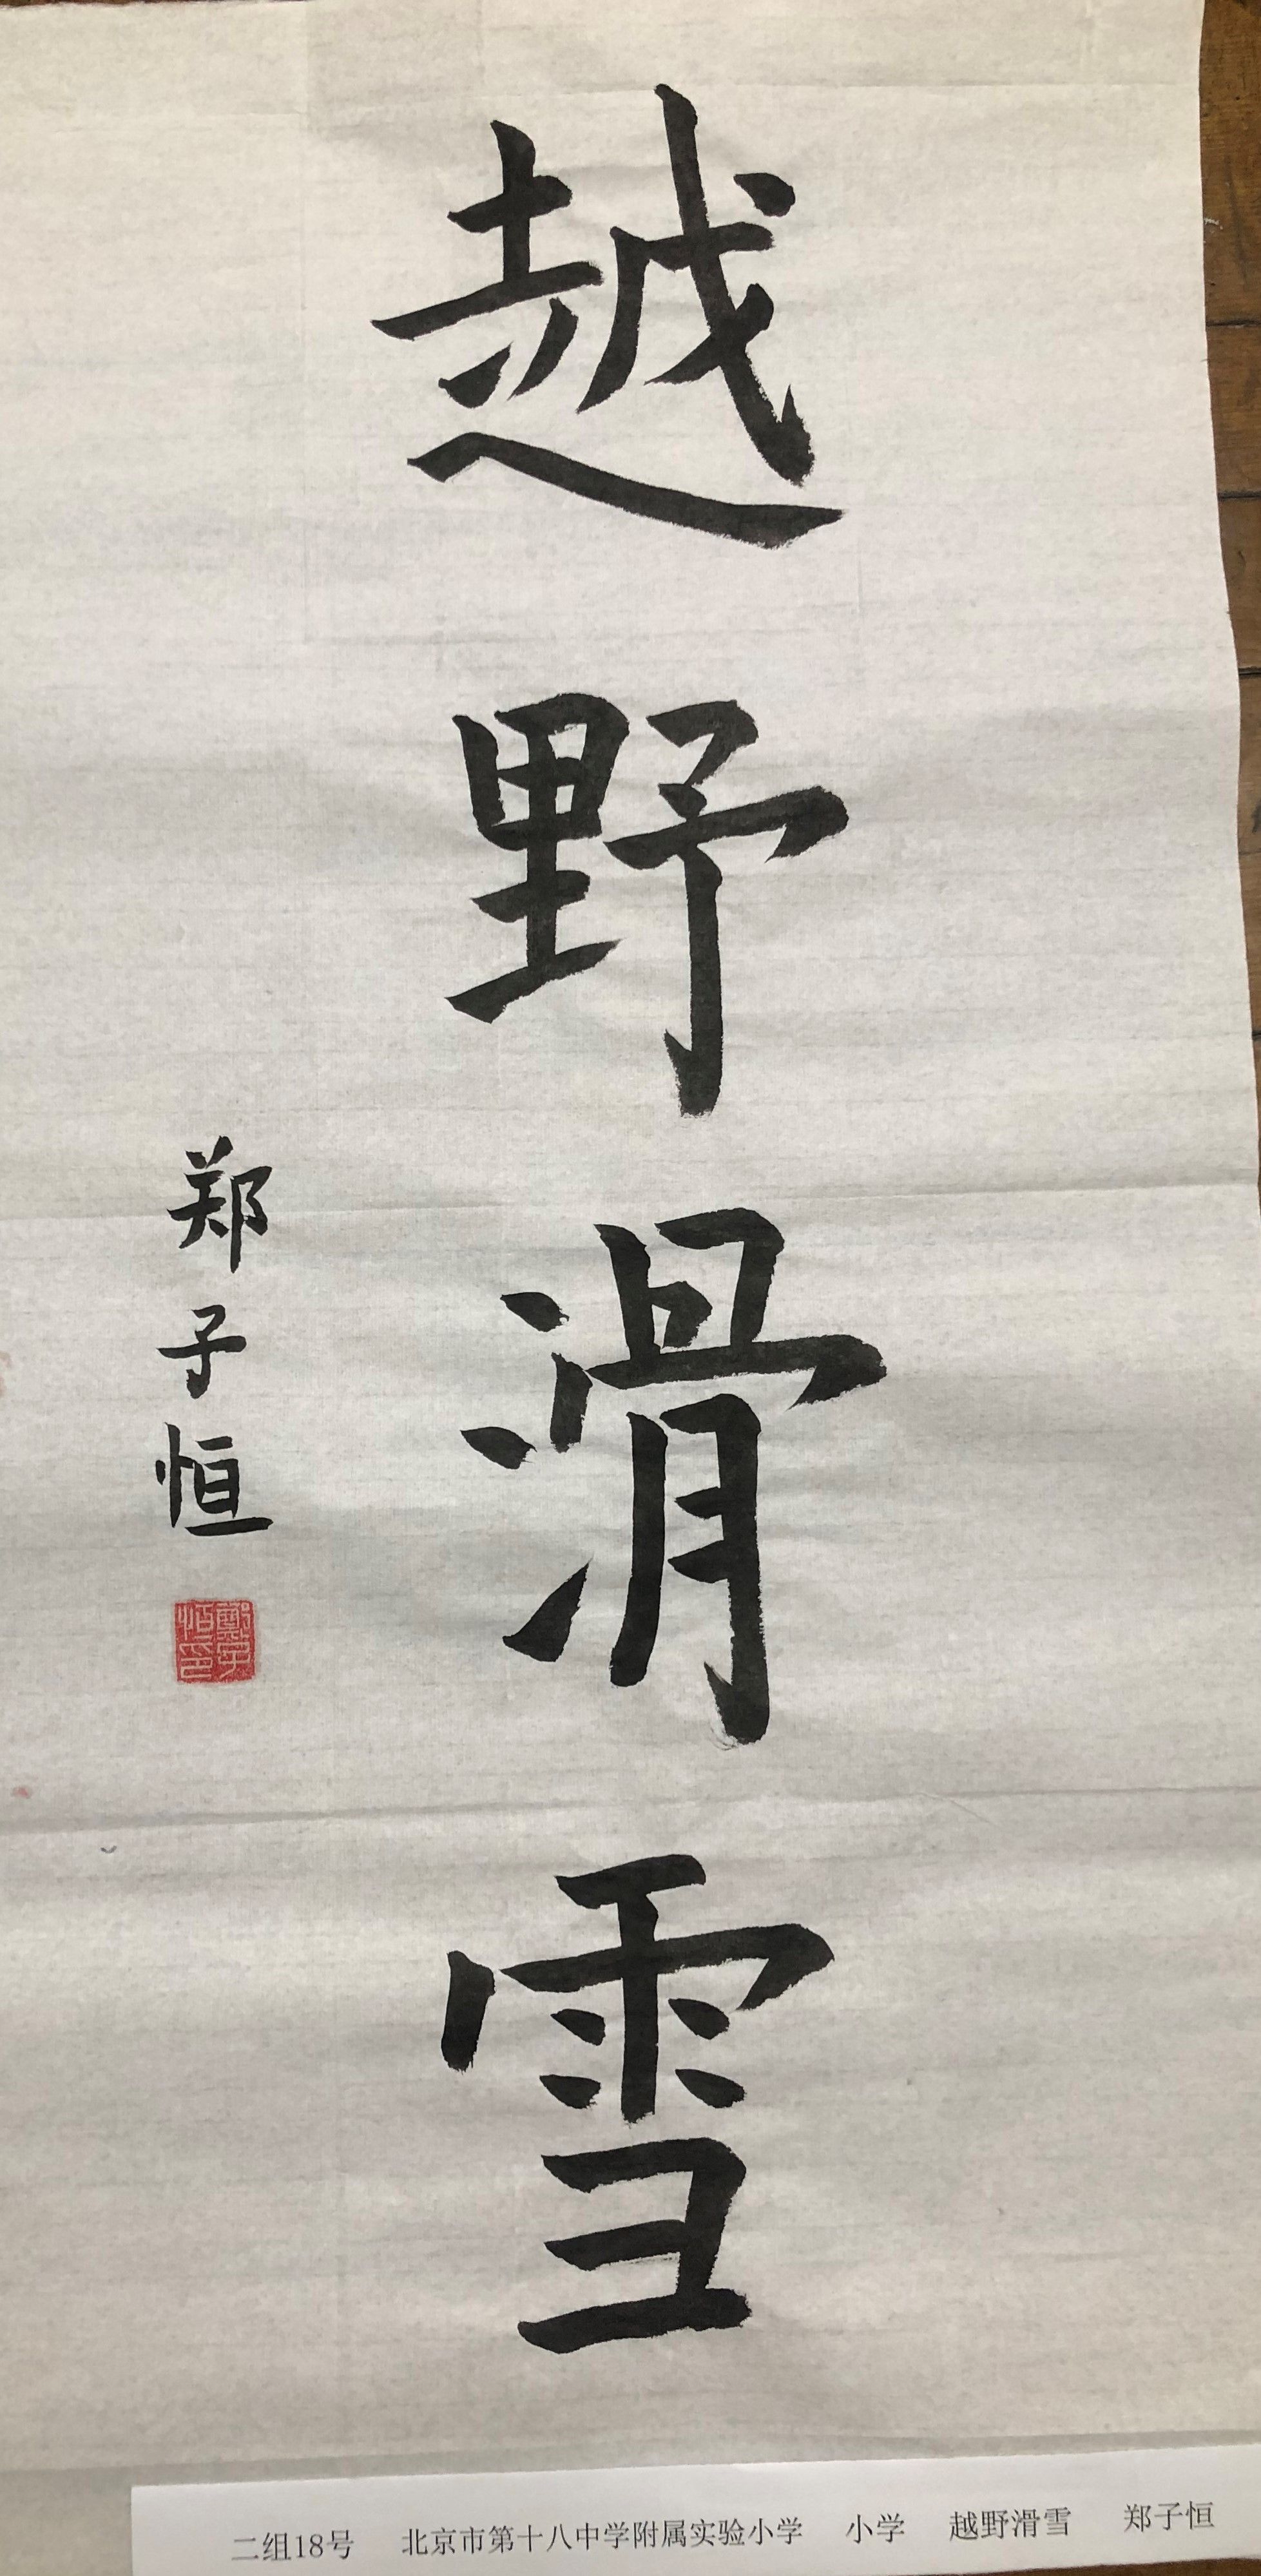 越野滑雪
郑子恒
鄭子恒印
二组18号 北京市第十八中学附属实验小学 小学 越野滑雪 郑子恒